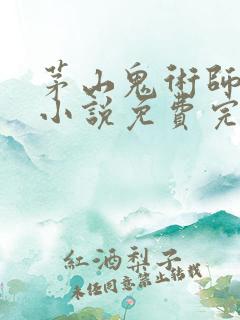 茅山鬼術師
小說免費完
紅酒梨子
未经同意禁止转载